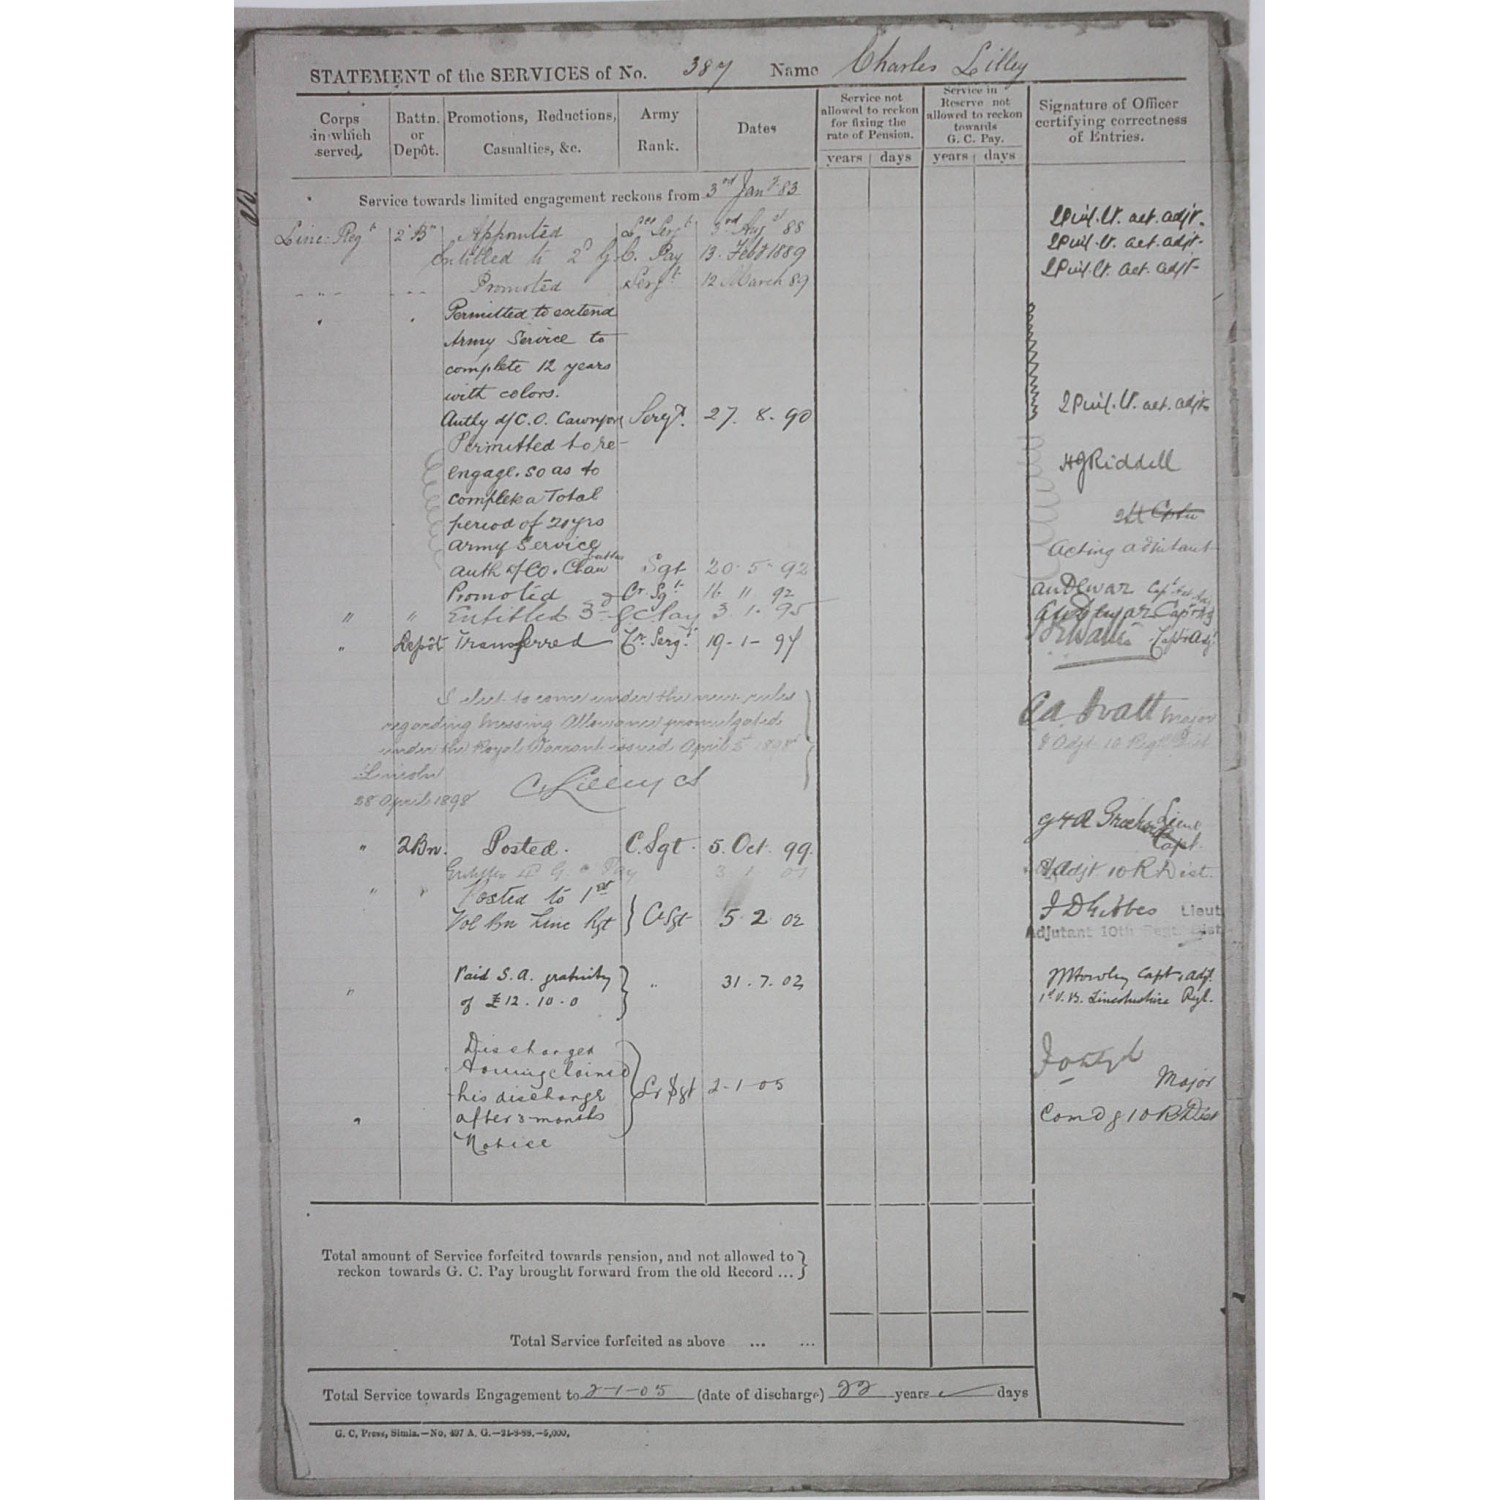 STATEMENT of the SERVICES of No. 387 Name Charles Lilley
Corps in which served. Battn. or Depôt. Promotions, Reductions, Casualties, &c. Army Rank. Dates Service not allowed to reckon for fixing the rate of Pension. Service in Reserve not allowed to reckon towards G. C. Pay. Signature of Officer certifying correctness of Entries.
years days years days
Service towards limited engagement reckons from 3rd Jany 83
Linc. Regt 2 Bn Appointed Lce Sergt 3rd 88 Lt. act. adjt.
Entitled to 2d G. C. Pay 13. Feby 1889 Lt. act. adjt.
Promoted Sergt 12 March 89 Lt. act. adjt.
Permitted to extend
Army Service to
complete 12 years
with colors.
Authy d/C.O. Sergt. 27. 8. 90 Lt. act. adjt.
Permitted to re-
engage. so as to H G Riddell
complete a Total
period of 21 yrs
army service Acting adjutant
auth d/CO. Sgt 20-5-92
Promoted Cr. Sgt 16 11 92
" " Entitled 3d G C Pay 3. 1. 95
" Depôt Transferred Cr. Sergt. 19-1-97 Capt & Adjt
I elect to come under the new rules
regarding Messing Allowance promulgated Major
under the Royal Warrant issued April 5 1898 Adjt. 10 Regtl Dist
Lincoln
28 April 1898 C Lilley CS
" 2Bn. Posted. C. Sgt. 5. Oct. 99. Capt.
Entitled G. C Pay 3 1 Adjt 10 R Dist.
" " Posted to 1st
Vol Bn Linc Rgt } Cr Sgt 5 2 02 Lieut
Adjutant 10th Regtl Dist
" Paid S. A. gratuity
of £12. 10. 0 } " 31. 7. 02 Capt & Adjt.
1st V. B. Lincolnshire Regt.
Discharged
having claimed
" his discharge } Cr Sgt 2-1-05 Major
after 3 months Comdg 10 R Dist
Notice
Total amount of Service forfeited towards pension, and not allowed to
reckon towards G. C. Pay brought forward from the old Record ... }
Total Service forfeited as above ... ...
Total Service towards Engagement to 2-1-05 (date of discharge) 22 years days
G. C. Press, Simla.—No. 497 A. G.—24-8-89.—5,000.